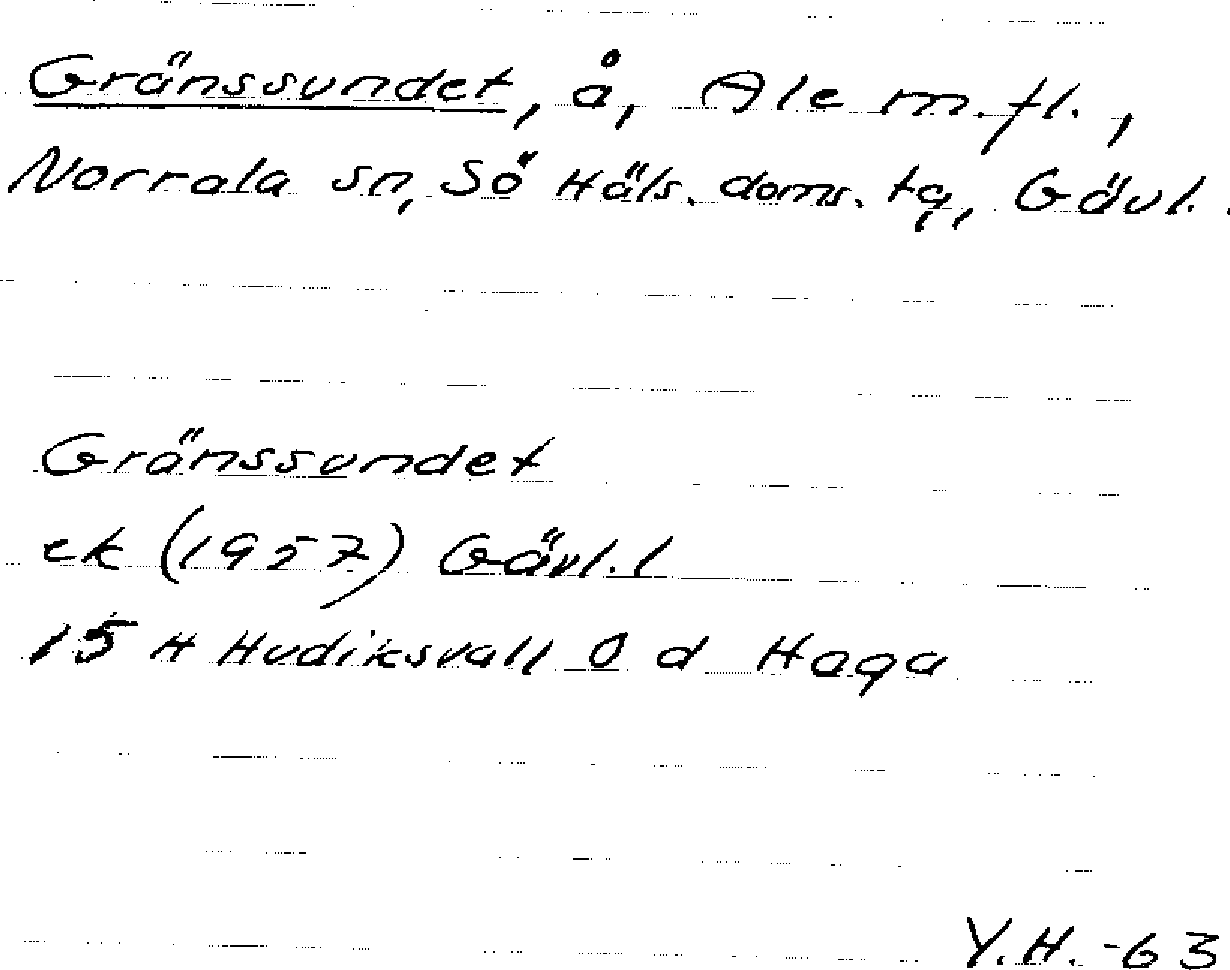 Gränssundet, å, Ale m.fl.,
Norrala sn, Sö Häls. doms. tg, Gävl.
Gränssundet
ek (1957) Gävl. l
15 H Hudiksvall 0 d Haga
Y.H. -63